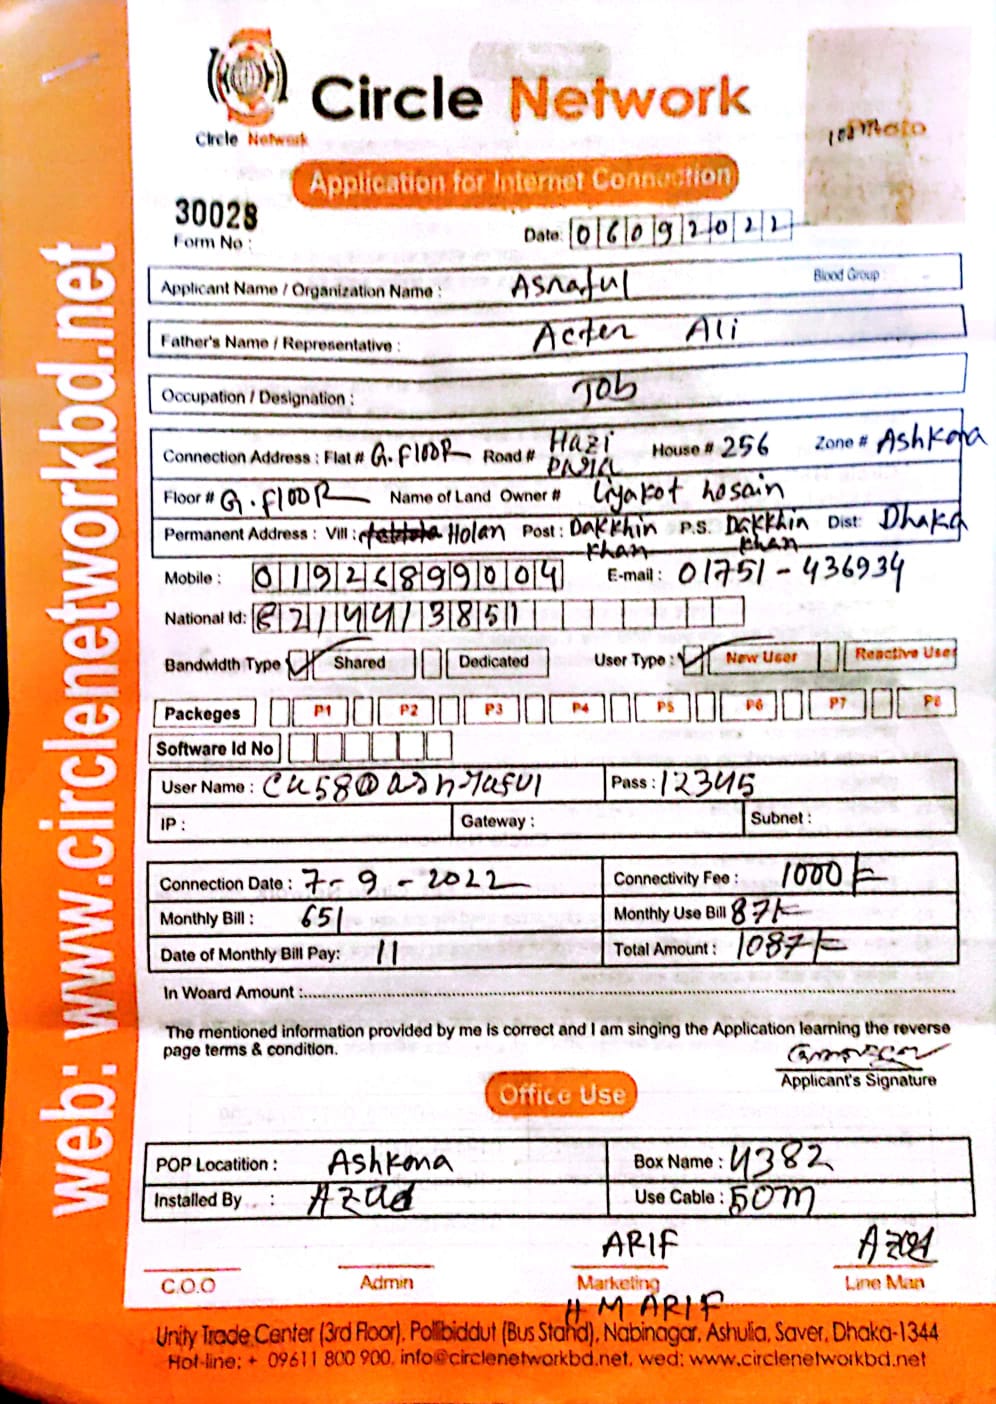 Circle Network
Circle Network
Photo
Application for Internet Connection
30028
Form No :
Date: 06092022
Applicant Name / Organization Name : Asraful Blood Group :
Father's Name / Representative : Acter Ali
Occupation / Designation : Job
Connection Address : Flat # G.FlooR Road # Hazi Para House # 256 Zone # Ashkona
Floor # G.FlooR Name of Land Owner # Liyakot hosain
Permanent Address : Vill : Holan Post : Dakkhin khan P.S. Dakkhin khan Dist: Dhaka
Mobile : 01926899004 E-mail : 01751-436934
National Id: 8214413851
Bandwidth Type Shared Dedicated User Type : New User Reactive User
Packeges P1 P2 P3 P4 P5 P6 P7 P8
Software Id No
User Name : Pass : 12345
IP : Gateway : Subnet :
Connection Date : 7-9-2022 Connectivity Fee : 1000
Monthly Bill : 651 Monthly Use Bill 87
Date of Monthly Bill Pay: 11 Total Amount : 1087
In Woard Amount :
The mentioned information provided by me is correct and I am singing the Application learning the reverse
page terms & condition.
Applicant's Signature
Office Use
POP Locatition : Ashkona Box Name : 4382
Installed By : Azad Use Cable : 50m
ARIF Azad
C.O.O Admin Marketing Line Man
H M ARIF
Unity Trade Center (3rd Floor), Pollibiddut (Bus Stand), Nabinagar, Ashulia, Saver, Dhaka-1344
Hot-line: + 09611 800 900, info@circlenetworkbd.net, wed: www.circlenetworkbd.net
web: www.circlenetworkbd.net